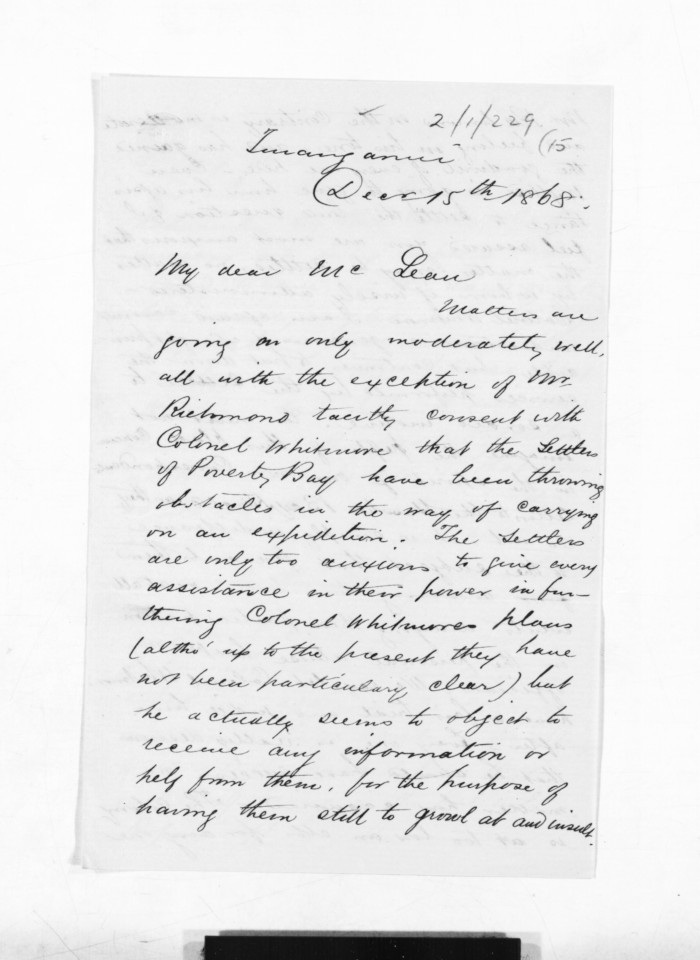 2/1/229
(15
Turanganui
Decr 15th 1868.
My dear McLean
Matters are
going on only moderately well,
all with the exception of Mr.
Richmond tacitly consent with
Colonel Whitmore that the Settlers
of Poverty Bay have been throwing
obstacles in the way of carrying
on an expidition. The Settlers
are only too anxious to give every
assistance in their power in fur-
thering Colonel Whitmores plans
(altho' up to the present they have
not been particulary clear) but
he actually seems to object to
receive any information or
help from them, for the purpose of
having them still to growl at and insult.